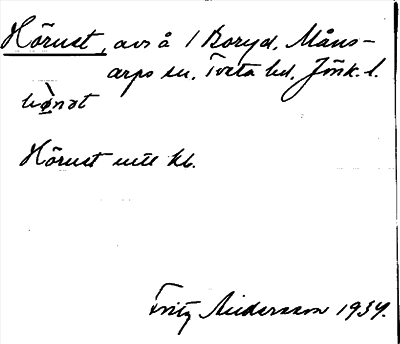 Hörust, avs å 1 Boryd, Måns-
arps sn. Tveta hd. Jönk. l.
Hörust utt kb.
Fritz Andersson 1934.